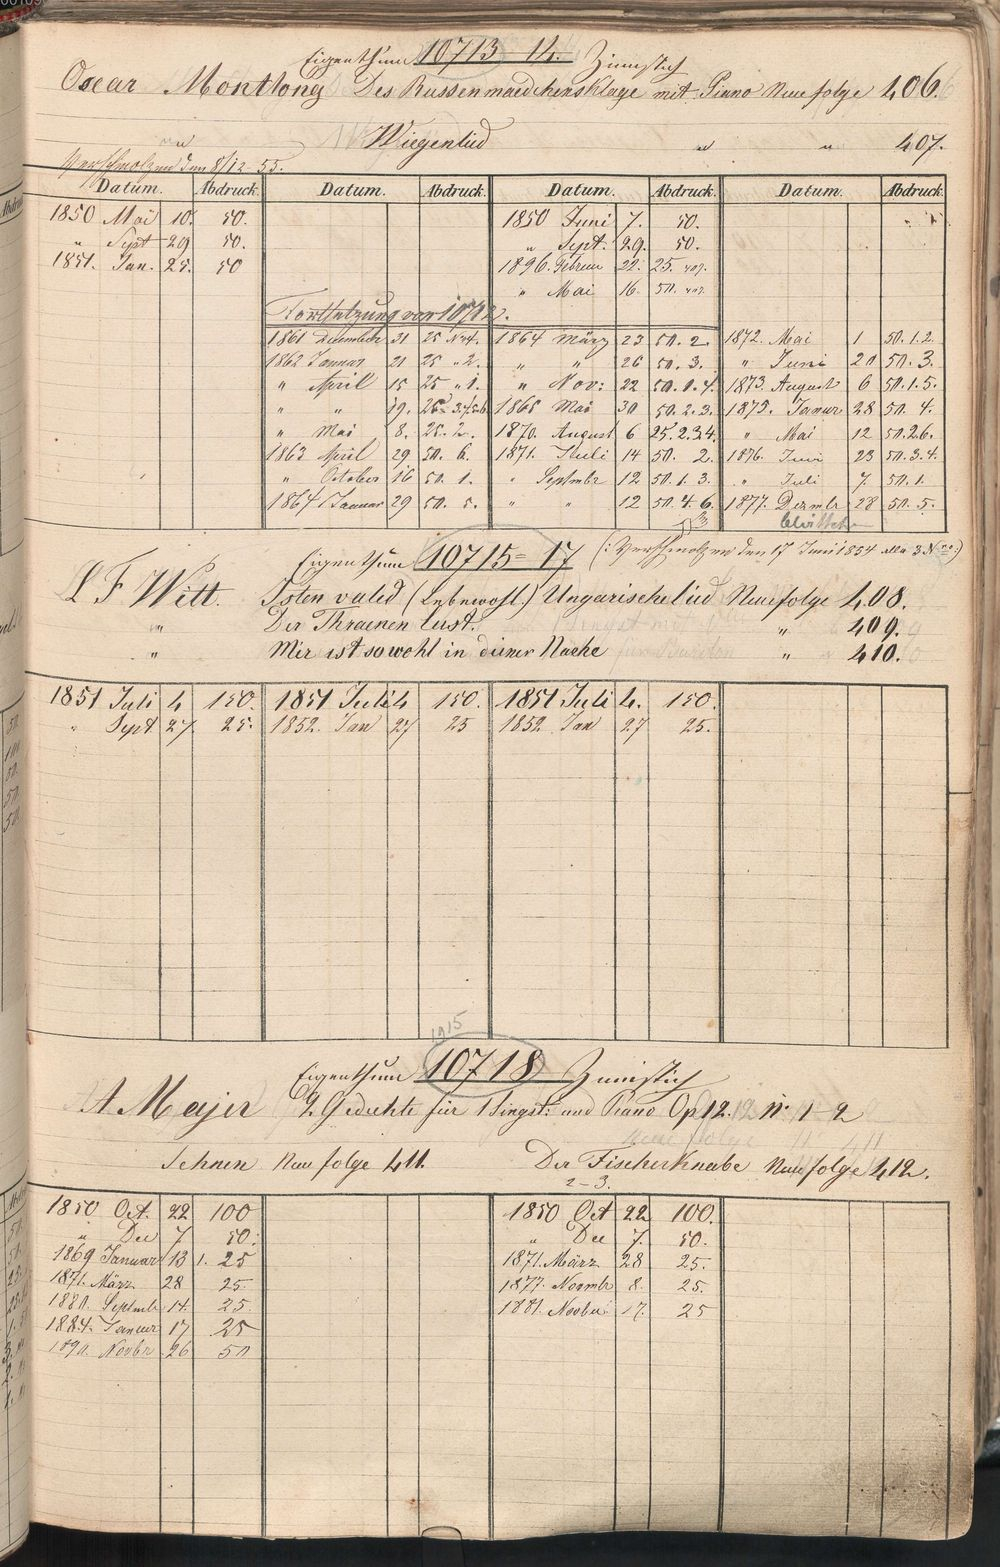 Eigenthum 10713–14. Zinnstich
Oscar Montlong Des Russenmaedchens Klage mit Piano Neue folge 406.
" Wiegenlied " " 407.
Verschmolzen den 8/12 55.
Datum. Abdruck. Datum. Abdruck. Datum. Abdruck. Datum. Abdruck.
1850 Mai 10. 50. 1850 Juni 7. 50.
" Sept 29 50. " Sept. 29. 50.
1851. Jan. 25. 50 1896. Februar 22. 25. 407.
" Mai 16. 50. 407.
Fortsetzung von 10712.
1861 December 31 25 No 4. 1864 März 23 50. 2. 1872. Mai 1 50. 1. 2.
1862 Januar 21 25 " 2. " " 26 50. 3. " Juni 20 50. 3.
" April 15 25 " 1. " Nov: 22 50. 1. 4. 1873. August 6 50. 1. 5.
" " 19. 1865 Mai 30 50. 2. 3. 1875. Januar 28 50. 4.
" Mai 8. 25. 2. 1870. August 6 25. 2. 3. 4. " Mai 12 50. 2. 6.
1863 April 29 50. 6. 1871. Juli 14 50. 2. 1876. Juni 23 50. 3. 4.
" October 16 50. 1. " Septmbr 12 50. 1. 3. " Juli 7. 50. 1.
1864 Januar 29 50. 5. " " 12 50. 4. 6. 1877. Dezmbr 28 50. 5.
Eigenthum 10715–17 (: Verschmolzen den 17 Juni 1854 alle 3 Nro :)
L F Witt. Isten valed (Lebewohl.) Ungarische lied Neue folge 408.
" Der Thraenen lust. " 409.
" Mir ist so wohl in deiner Naehe " 410.
1851 Juli 4 150. 1851 Juli 4 150. 1851 Juli 4. 150.
" Sept 27 25. 1852. Jan 27 25 1852 Jan 27 25.
1915
Eigenthum 10718 Zinnstich
A Majer 2 Gedichte für 1 Singst: und Piano Op 12. No 1–2
Sehnen Neue folge 411. Der Fischerknabe Neue folge 412.
2–3.
1850 Oct. 22 100 1850 Oct 22 100.
" Dec 7 50. " Dec 7. 50.
1869 Januar 13 1. 25 1871. März 28 25.
1871. März 28 25. 1877. Novmbr 8. 25.
1880. Septmb 14. 25. 1881. Novber 17. 25
1884. Januar 17 25
1890. Novbr 26 50